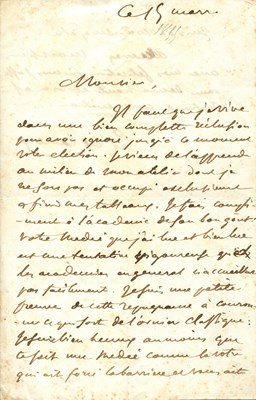 Ce 15 mars
1855
Monsieur,
Il faut que je vive
dans une bien complette réclusion
pour avoir ignoré jusqu'à ce moment
votre élection. Je viens de l'apprendre
au milieu de mon atelier dont je
ne sors pas et occupé exclusivement
à finir mes tableaux. Je fais compli-
ment à l'académie de son bon goût:
votre Medée que j'ai lue et bien lue
est une tentative que
les académies en general n'accueillent
pas facilement. Je suis une petite
preuve de cette repugnance à couron-
ner ce qui sort de l'ornière classique:
Je suis bien heureux au moins que
ce soit une Medée comme la votre
qui ait forcé la barrière et vous ait